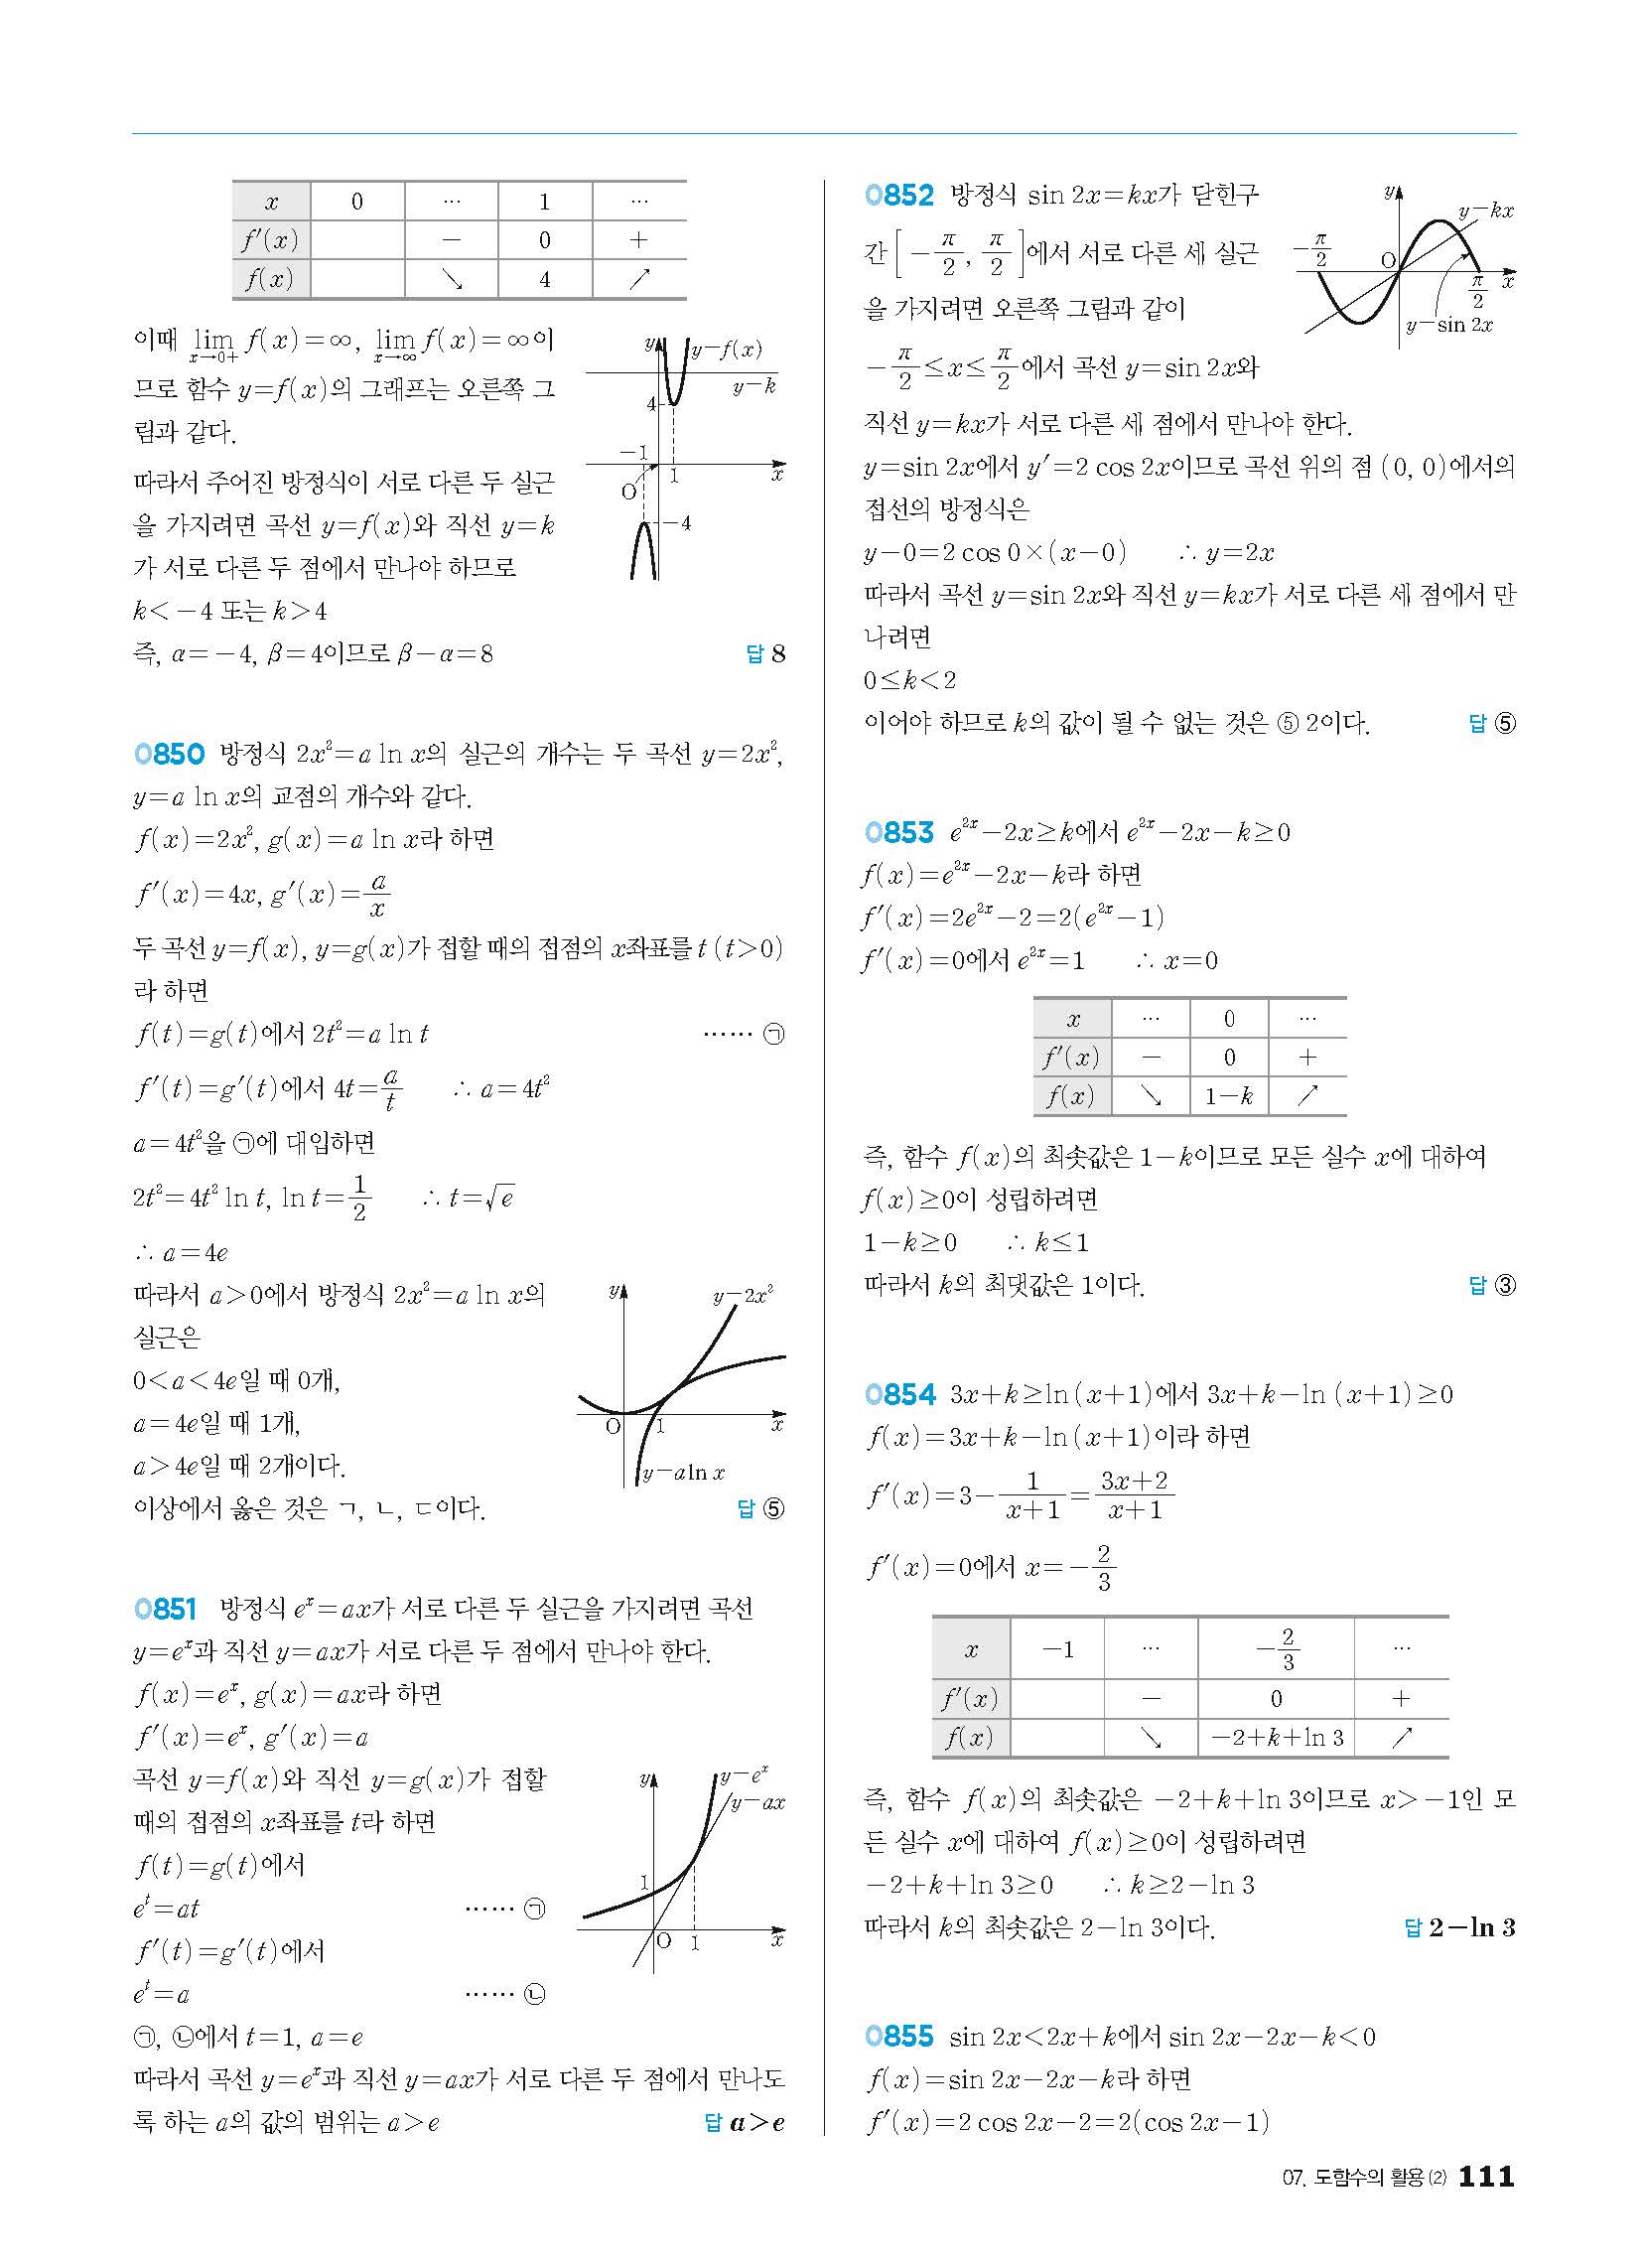 x 0 ⋯ 1 ⋯
f′(x) − 0 +
f(x) ↘ 4 ↗
이때 lim_{x→0+} f(x)=∞, lim_{x→∞} f(x)=∞이
므로 함수 y=f(x)의 그래프는 오른쪽 그
림과 같다.
따라서 주어진 방정식이 서로 다른 두 실근
을 가지려면 곡선 y=f(x)와 직선 y=k
가 서로 다른 두 점에서 만나야 하므로
k<−4 또는 k>4
즉, α=−4, β=4이므로 β−α=8 답 8
y
y=f(x)
y=k
4
−1
1
x
O
−4
0850 방정식 2x²=a ln x의 실근의 개수는 두 곡선 y=2x²,
y=a ln x의 교점의 개수와 같다.
f(x)=2x², g(x)=a ln x라 하면
f′(x)=4x, g′(x)=a/x
두 곡선 y=f(x), y=g(x)가 접할 때의 접점의 x좌표를 t (t>0)
라 하면
f(t)=g(t)에서 2t²=a ln t ⋯⋯ ㉠
f′(t)=g′(t)에서 4t=a/t ∴ a=4t²
a=4t²을 ㉠에 대입하면
2t²=4t² ln t, ln t=1/2 ∴ t=√e
∴ a=4e
따라서 a>0에서 방정식 2x²=a ln x의
실근은
0<a<4e일 때 0개,
a=4e일 때 1개,
a>4e일 때 2개이다.
이상에서 옳은 것은 ㄱ, ㄴ, ㄷ이다. 답 ⑤
y
y=2x²
O
1
x
y=a ln x
0851 방정식 eˣ=ax가 서로 다른 두 실근을 가지려면 곡선
y=eˣ과 직선 y=ax가 서로 다른 두 점에서 만나야 한다.
f(x)=eˣ, g(x)=ax라 하면
f′(x)=eˣ, g′(x)=a
곡선 y=f(x)와 직선 y=g(x)가 접할
때의 접점의 x좌표를 t라 하면
f(t)=g(t)에서
eᵗ=at ⋯⋯ ㉠
f′(t)=g′(t)에서
eᵗ=a ⋯⋯ ㉡
㉠, ㉡에서 t=1, a=e
따라서 곡선 y=eˣ과 직선 y=ax가 서로 다른 두 점에서 만나도
록 하는 a의 값의 범위는 a>e 답 a>e
y
y=eˣ
y=ax
1
O
1
x
0852 방정식 sin 2x=kx가 닫힌구
간 [−π/2, π/2]에서 서로 다른 세 실근
을 가지려면 오른쪽 그림과 같이
−π/2≤x≤π/2에서 곡선 y=sin 2x와
직선 y=kx가 서로 다른 세 점에서 만나야 한다.
y=sin 2x에서 y′=2 cos 2x이므로 곡선 위의 점 (0, 0)에서의
접선의 방정식은
y−0=2 cos 0×(x−0) ∴ y=2x
따라서 곡선 y=sin 2x와 직선 y=kx가 서로 다른 세 점에서 만
나려면
0≤k<2
이어야 하므로 k의 값이 될 수 없는 것은 ⑤ 2이다. 답 ⑤
y
y=kx
−π/2
O
π/2
x
y=sin 2x
0853 e²ˣ−2x≥k에서 e²ˣ−2x−k≥0
f(x)=e²ˣ−2x−k라 하면
f′(x)=2e²ˣ−2=2(e²ˣ−1)
f′(x)=0에서 e²ˣ=1 ∴ x=0
x ⋯ 0 ⋯
f′(x) − 0 +
f(x) ↘ 1−k ↗
즉, 함수 f(x)의 최솟값은 1−k이므로 모든 실수 x에 대하여
f(x)≥0이 성립하려면
1−k≥0 ∴ k≤1
따라서 k의 최댓값은 1이다. 답 ③
0854 3x+k≥ln (x+1)에서 3x+k−ln (x+1)≥0
f(x)=3x+k−ln (x+1)이라 하면
f′(x)=3−1/(x+1)=(3x+2)/(x+1)
f′(x)=0에서 x=−2/3
x −1 ⋯ −2/3 ⋯
f′(x) − 0 +
f(x) ↘ −2+k+ln 3 ↗
즉, 함수 f(x)의 최솟값은 −2+k+ln 3이므로 x>−1인 모
든 실수 x에 대하여 f(x)≥0이 성립하려면
−2+k+ln 3≥0 ∴ k≥2−ln 3
따라서 k의 최솟값은 2−ln 3이다. 답 2−ln 3
0855 sin 2x<2x+k에서 sin 2x−2x−k<0
f(x)=sin 2x−2x−k라 하면
f′(x)=2 cos 2x−2=2(cos 2x−1)
07. 도함수의 활용 (2) 111